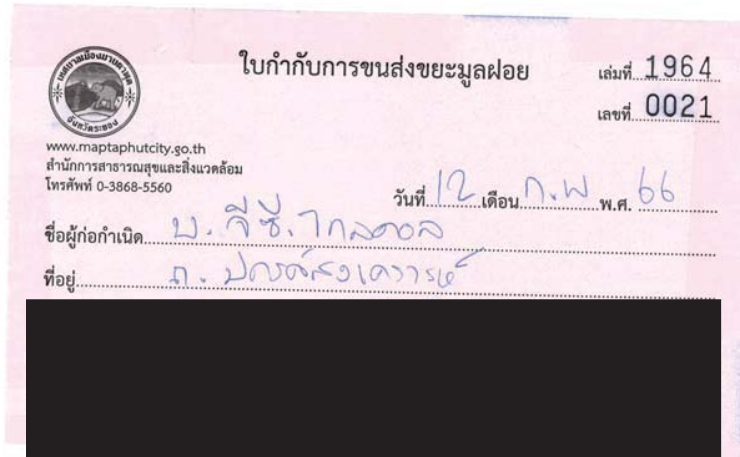 เทศบาลเมืองมาบตาพุด
จังหวัดระยอง
ใบกำกับการขนส่งขยะมูลฝอย
เล่มที่ 1964
เลขที่ 0021
www.maptaphutcity.go.th
สำนักการสาธารณสุขและสิ่งแวดล้อม
โทรศัพท์ 0-3868-5560
วันที่ 12 เดือน ก.พ พ.ศ. 66
ชื่อผู้ก่อกำเนิด บ. จีซี.ไกลคอล
ที่อยู่ ถ. ปกรณ์สงเคราะห์